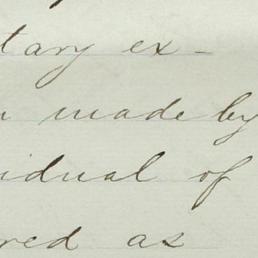 tary ex-
made by
idual of
red as